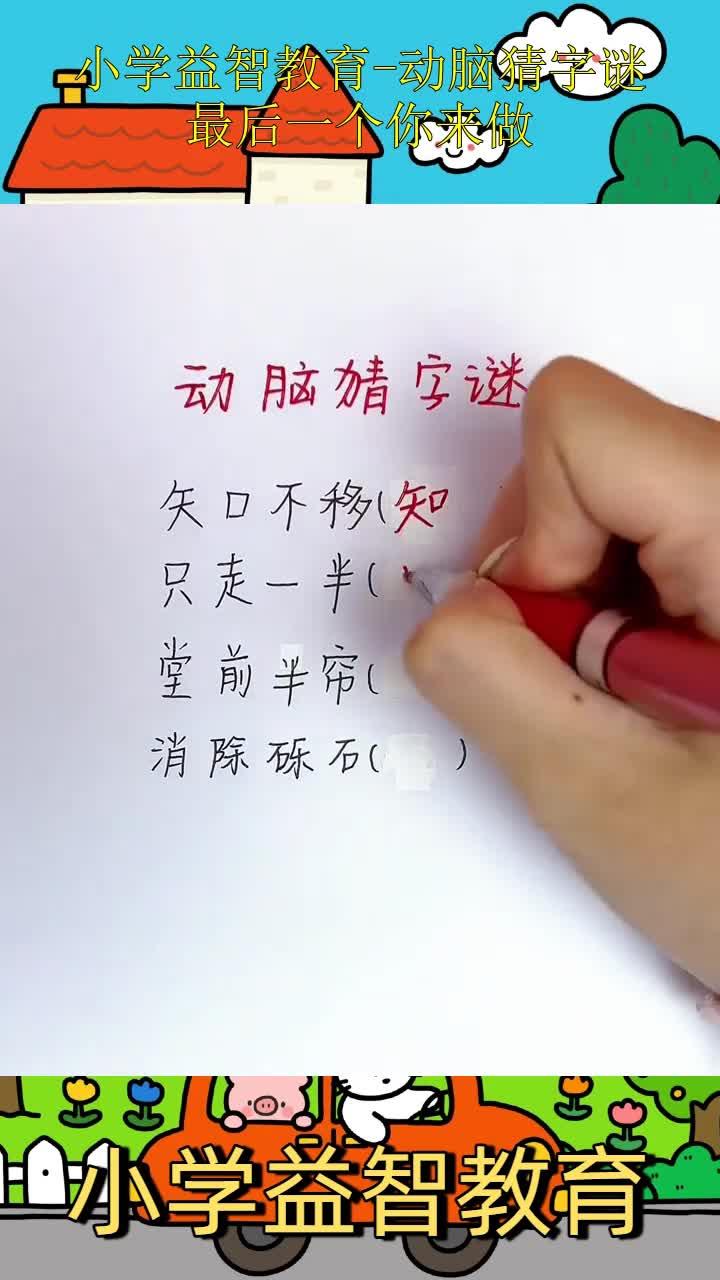 小学益智教育-动脑猜字谜
最后一个你来做
动脑猜字谜
矢口不移(知
只走一半(
堂前半帘(
消除砾石( )
小学益智教育